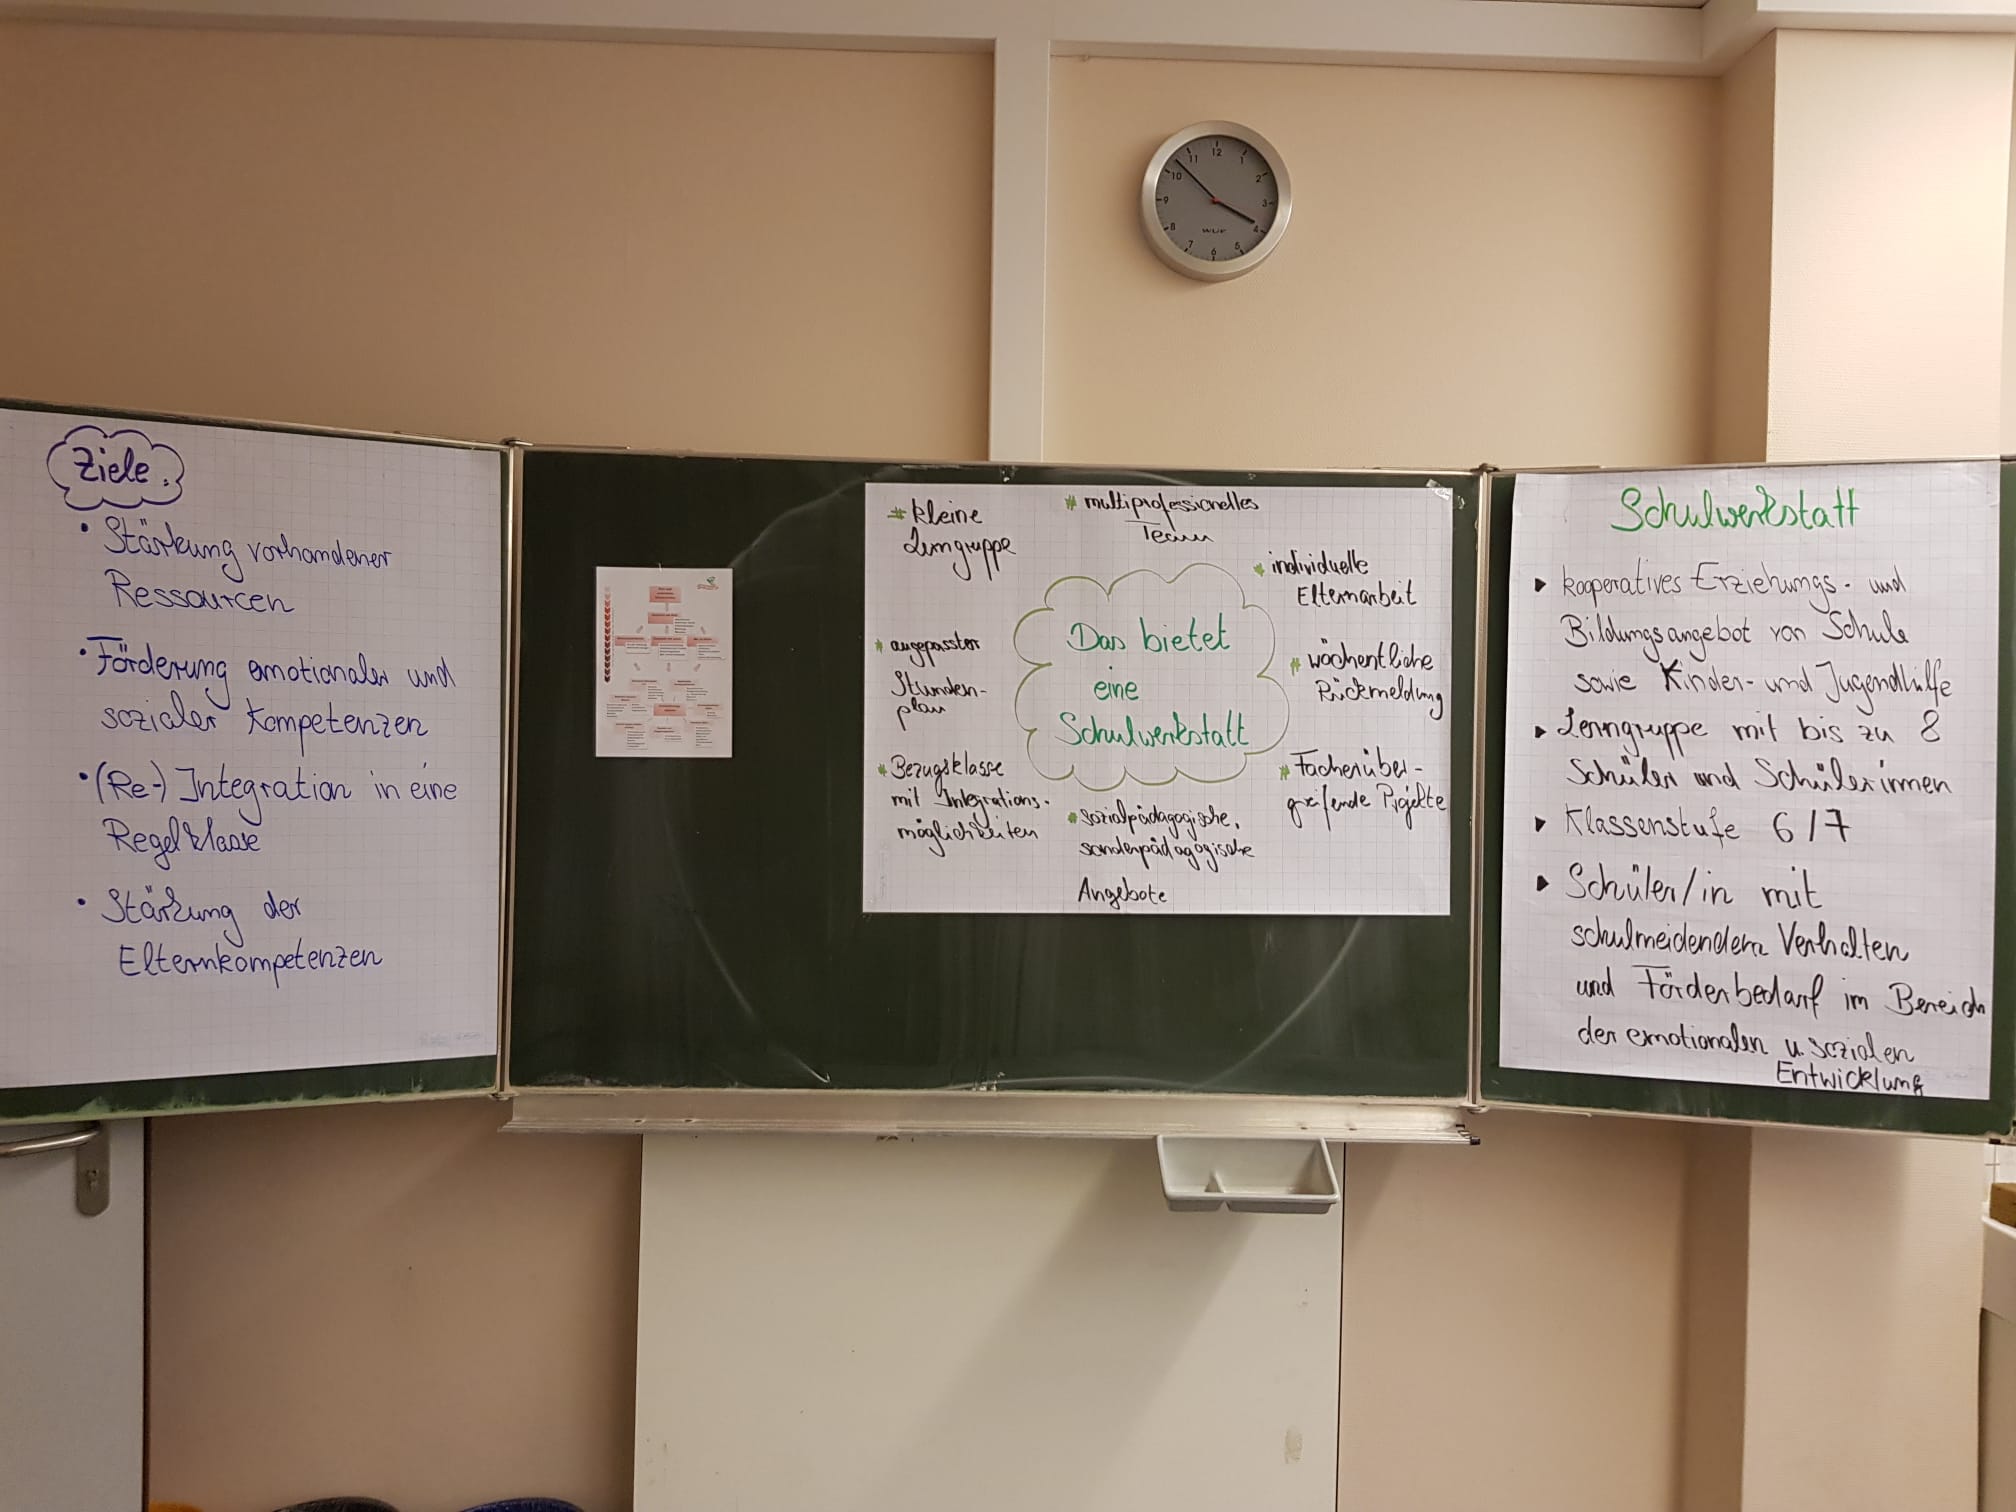 12
1
2
3
4
5
6
7
8
9
10
11
Ziele.
• Stärkung vorhandener
Ressourcen
• Förderung emotionaler und
sozialer Kompetenzen
• (Re-) Integration in eine
Regelklasse
• Stärkung der
Elternkompetenzen
# kleine
Lerngruppe
# multiprofessionelles
Team
# individuelle
Elternarbeit
# angepasster
Stunden-
plan
Das bietet
eine
Schulwerkstatt
# wöchentliche
Rückmeldung
# Bezugsklasse
mit Integrations-
möglichkeiten
# sozialpädagogische,
sonderpädagogische
Angebote
# Fächerüber-
greifende Projekte
Schulwerkstatt
▸ kooperatives Erziehungs- und
Bildungsangebot von Schule
sowie Kinder- und Jugendhilfe
▸ Lerngruppe mit bis zu 8
Schüler und Schülerinnen
▸ Klassenstufe 6/7
▸ Schüler/in mit
schulmeidendem Verhalten
und Förderbedarf im Bereich
der emotionalen u. sozialen
Entwicklung